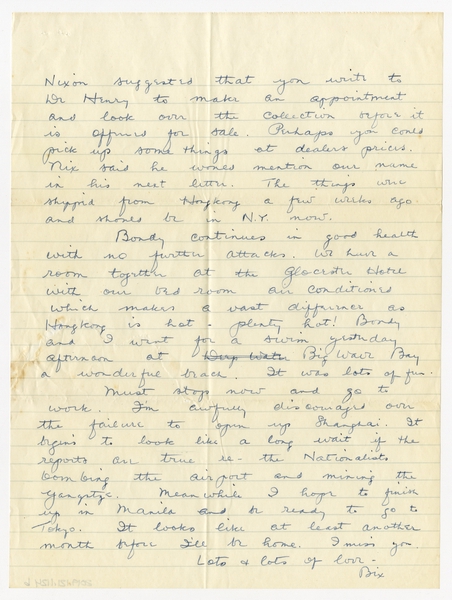 Nixon suggested that you write to
Dr Henry to make an appointment
and look over the collection before it
is offered for sale. Perhaps you could
pick up some things at dealers prices.
Nix said he would mention our name
in his next letter. The things were
shipped from Hongkong a few weeks ago
and should be in N.Y. now.
Bondy continues in good health
with no further attacks. We have a
room together at the Glocester Hotel
with our bed room air conditioned
which makes a vast difference as
Hongkong is hot - plenty hot! Bondy
and I went for a swim yesterday
afternoon at Deep Water Big Wave Bay
a wonderful beach. It was lots of fun.
Must stop now and go to
work. I'm awfully discouraged over
the failure to open up Shanghai. It
begins to look like a long wait if the
reports are true re - the Nationalists
bombing the airport and mining the
Yangtze. Meanwhile I hope to finish
up in Manila and be ready to go to
Tokyo. It looks like at least another
month before I'll be home. I miss you.
Lots & lots of love -
Bix